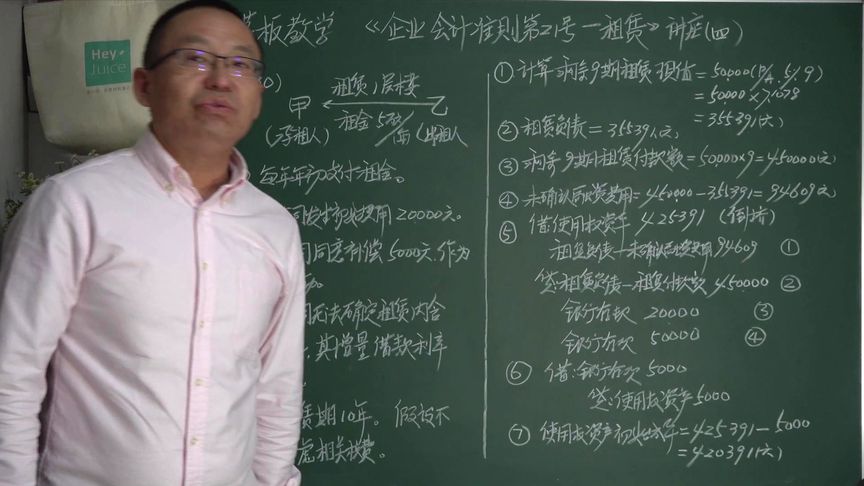 Hey
Juice
板教学 《企业会计准则第21号—租赁》讲座(四)
甲 租赁1层楼 乙
(承租人) 租金5万/年 (出租人
每年年初支付租金。
初始费用20000元。
同意补偿5000元.作为
无法确定租赁内含
.其增量借款利率
期10年。假设不
虑相关税费。
①计算剩余9期租赁现值=50000(P/A.5%.9)
=50000×7.1078
=355391(元)
②租赁负债=355391(元)
③剩余9期租赁付款额=50000×9=450000元
④未确认融资费用=450000-355391=94609元
⑤借:使用权资产 425391 (倒挤)
租赁负债—未确认融资费用94609 ①
贷:租赁负债—租赁付款额450000 ②
银行存款 20000 ③
银行存款 50000 ④
⑥借:银行存款5000
贷:使用权资产5000
⑦使用权资产初始成本=425391-5000
=420391(元)